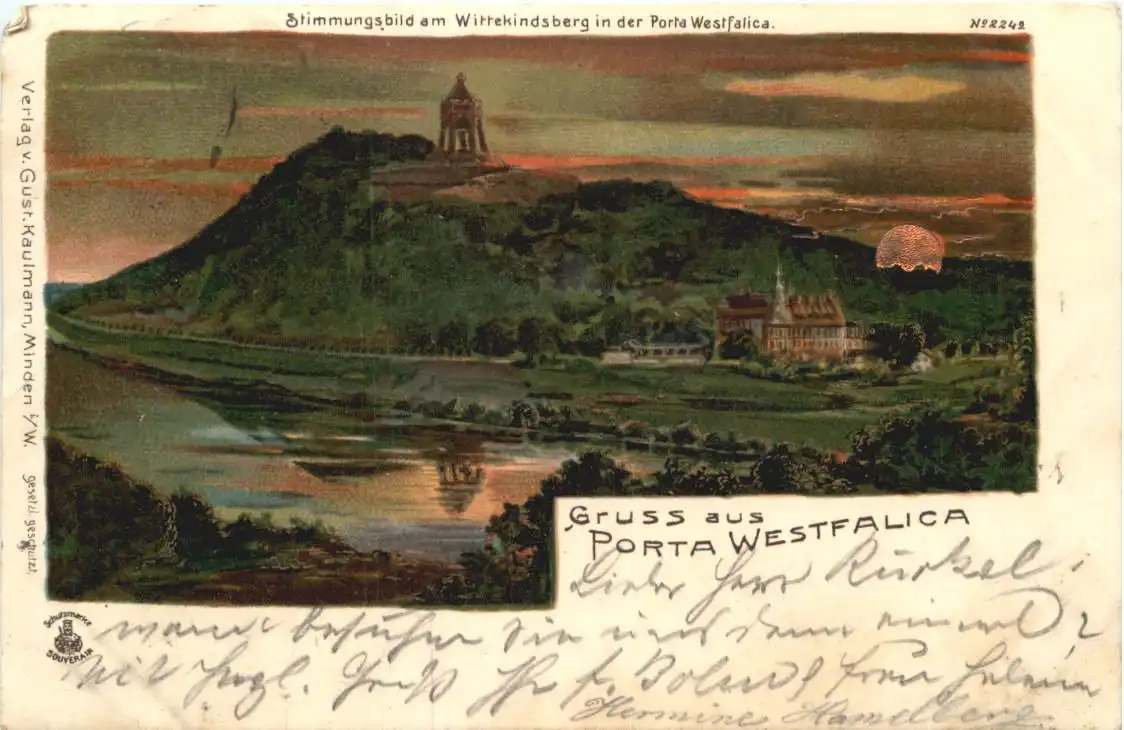 Stimmungsbild am Wittekindsberg in der Porta Westfalica.
No 2249
Verlag v. Gust. Kaulmann, Minden i/W. gesetzl. geschützt.
Gruss aus
Porta Westfalica
Lieber Herr
wann besuchen Sie uns denn einmal?
Mit herzl. Gruß Ihr Frau
Hermine Hamelberg
Schutzmarke
SOUVERAIN